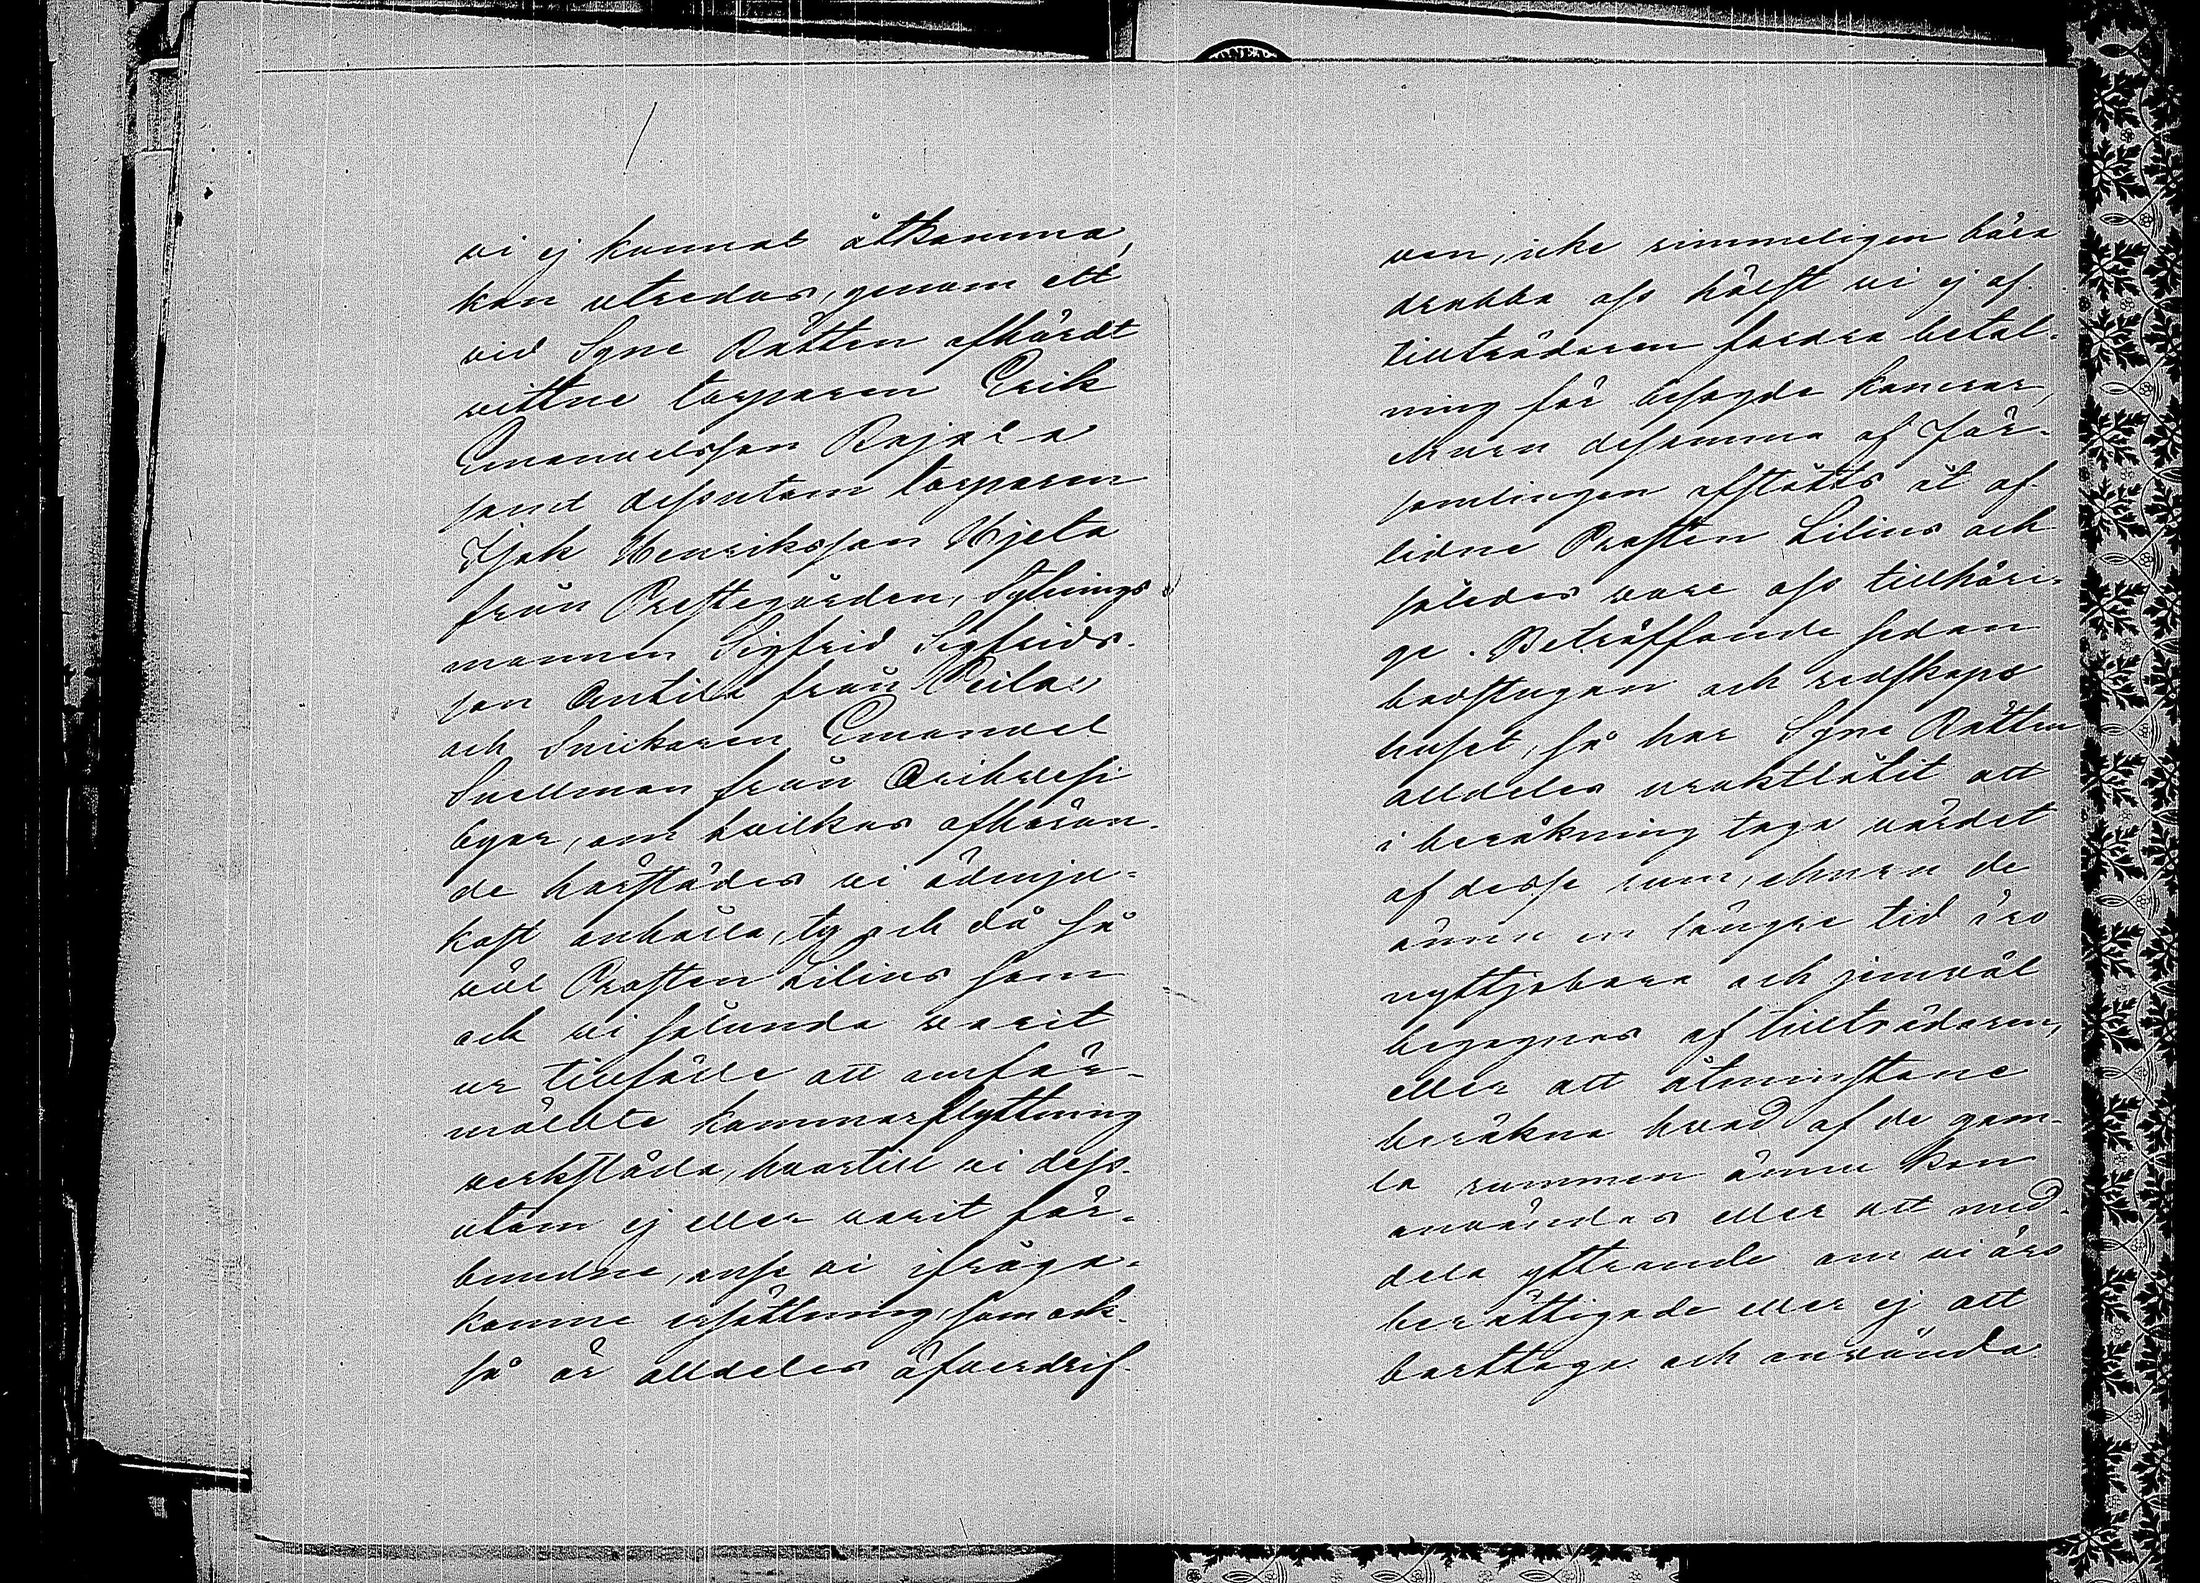 vi ej kunnat åtkomma,
kan utredas, genom ett
vid Syne Rätten afhördt
vittne torparen Erik
Emanuelsson Rajala
samt dessutom torparen
Isak Henriksson Hjelta
från Prestegården, Sytnings-
mannen Sigfrid Sigfrids-
son Antila från Peila
och Snickaren Emanuel
Snellman från Orihvesi
byar, om hvilkas afhöran-
de härstädes vi ödmju-
kast anhålla, ty och då så
väl Prosten Lilius som
ock vi sålunda varit
ur tillfälle att omför-
mälte kammarflyttning
verkställa, hvartill vi dess-
utom ej eller varit för-
bundne, anse vi ifråga-
komne ersättning, som ock-
så är alldeles öfverdrif-
ven, icke rimmeligen böra
drabba oss hälst vi ej af
tillträdaren fordra betal-
ning för besagde kamrar,
ehuru desamma af För-
samlingen afstått åt af-
lidne Prosten Lilius och
således vore oss tillhöri-
ge. Beträffande sedan
badstugan och redskaps
huset, så har Syne Rätten
alldeles uraktlåtit att
i beräkning taga värdet
af desse rum, ehuru de
ännu en längre tid äro
nyttjebara och jemväl
begagnas af tillträdaren,
eller att åtminstone
beräkna hvad af de gam-
la rummen ännu kan
användas eller att med-
dela yttrande om vi äro
berättigade eller ej att
borttaga och använda